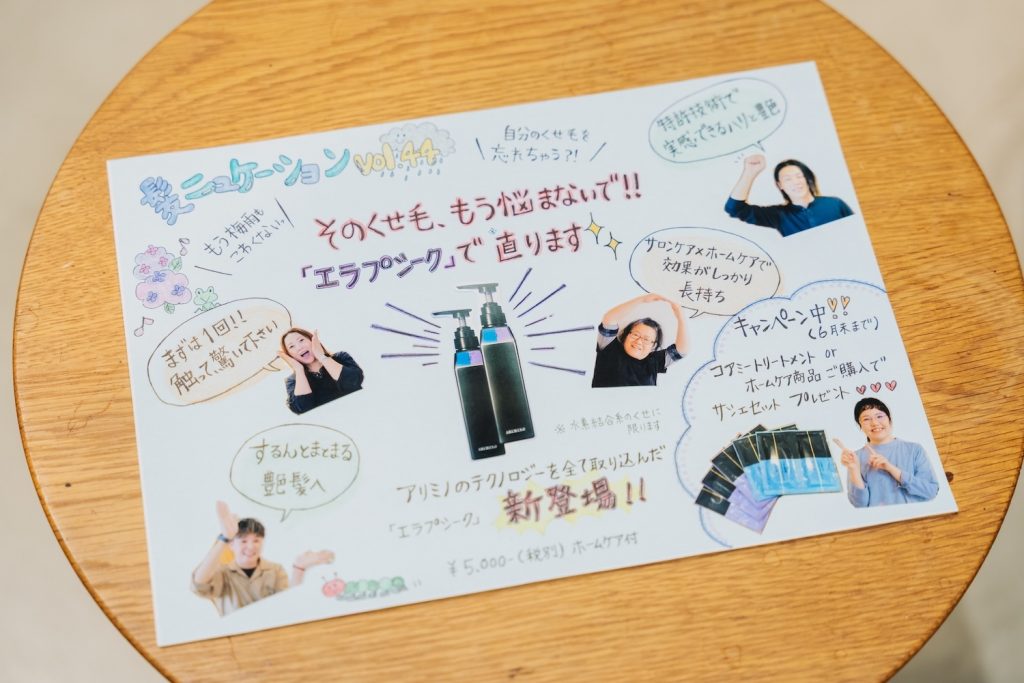 髪ニュケーション vol.44
自分のくせ毛を
忘れちゃう?!
特許技術で
実感できるハリと艶
もう梅雨も
こわくない
そのくせ毛、もう悩まないで!!
「エラプジーク」で※直ります
サロンケア×ホームケアで
効果がしっかり
長持ち
まずは1回!!
触って驚いて下さい
キャンペーン中!!
(6月末まで)
コアミートリートメント or
ホームケア商品ご購入で
サシェセット プレゼント
※水素結合系のくせに
限ります
するんとまとまる
艶髪へ
アリミノのテクノロジーを全て取り込んだ
「エラプジーク」 新登場!!
¥5,000-(税別) ホームケア付